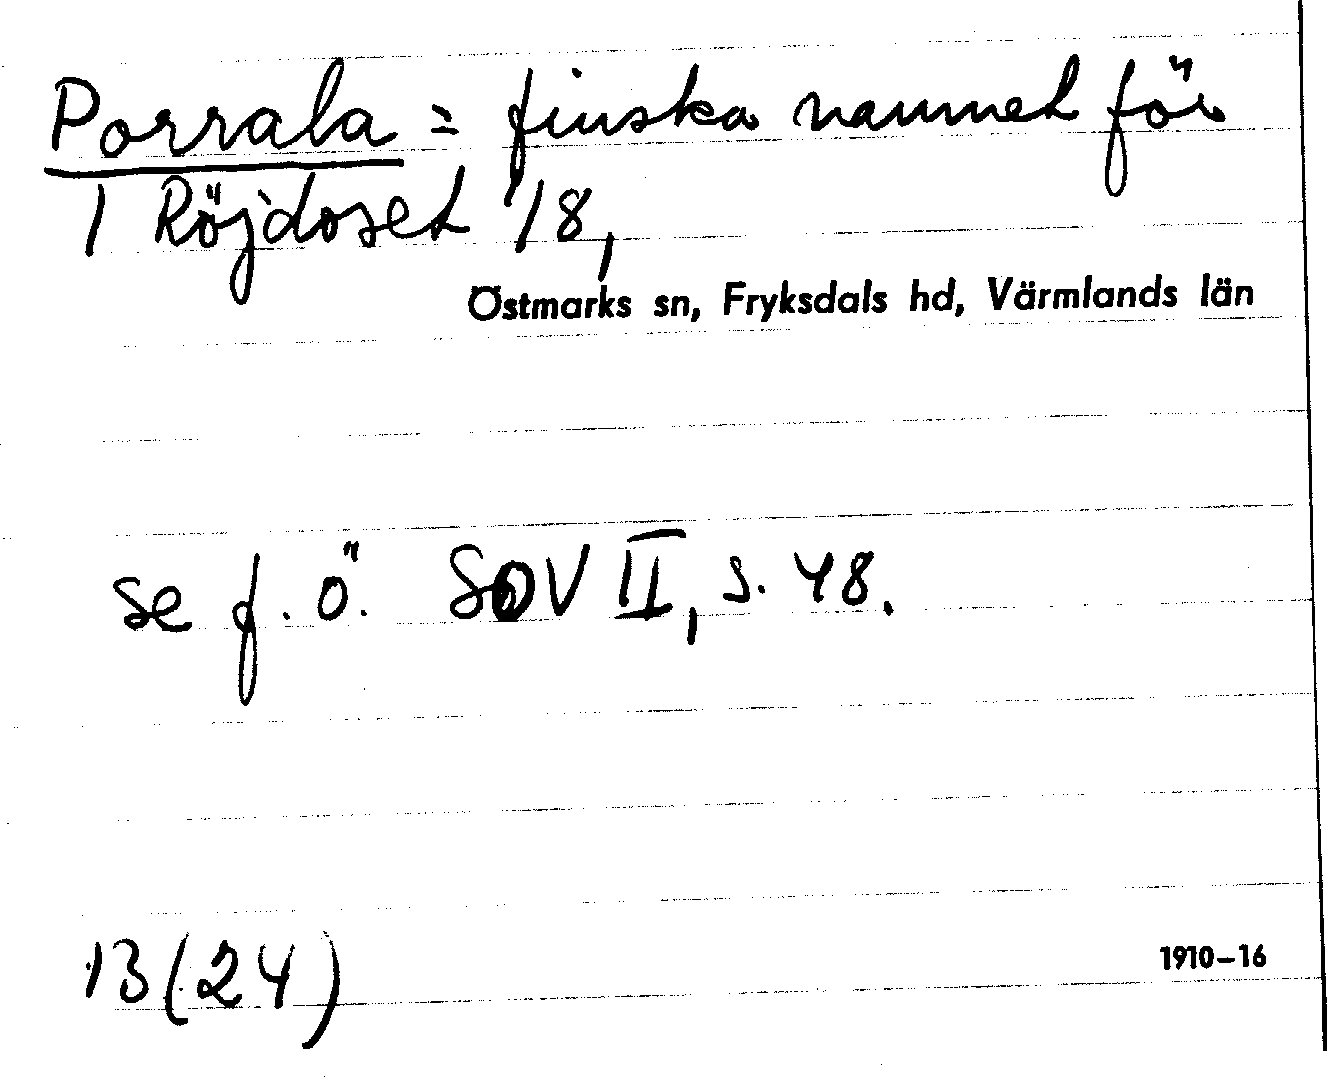 Porrala = finska namnet för
1 Röjdoset 1/8,
Östmarks sn, Fryksdals hd, Värmlands län
se f. ö. SOV II, s. 48.
13 (24)
1910–16